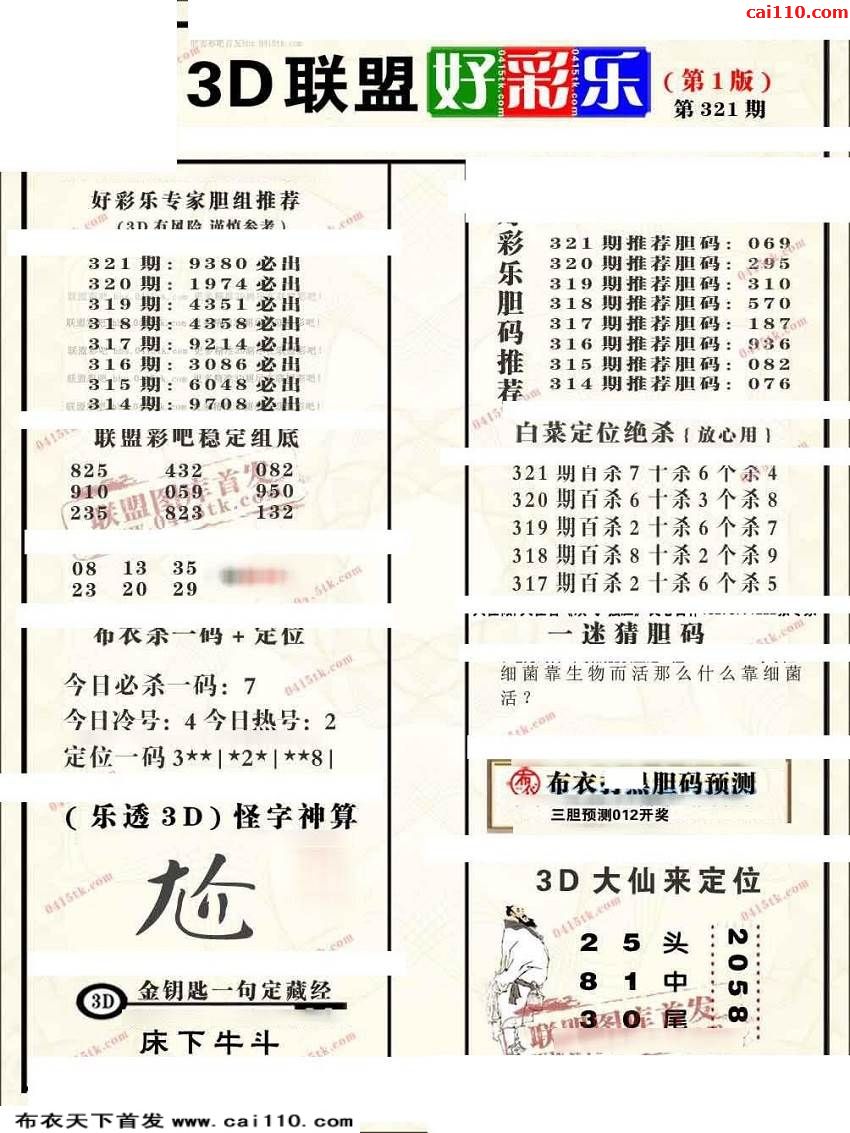 cai110.com
3D联盟好彩乐
(第1版)
第321期
好彩乐专家胆组推荐
(3D有风险 谨慎参考)
321期：9380必出
320期：1974必出
319期：4351必出
318期：4358必出
317期：9214必出
316期：3086必出
315期：6048必出
314期：9708必出
联盟彩吧稳定组底
825 432 082
910 059 950
235 823 132
08 13 35
23 20 29
布衣杀一码+定位
今日必杀一码：7
今日冷号：4 今日热号：2
定位一码 3**|*2*|**8|
(乐透3D)怪字神算
尬
3D 金钥匙一句定藏经
床下牛斗
彩乐胆码推荐
321期推荐胆码：069
320期推荐胆码：295
319期推荐胆码：310
318期推荐胆码：570
317期推荐胆码：187
316期推荐胆码：936
315期推荐胆码：082
314期推荐胆码：076
白菜定位绝杀{放心用}
321期百杀7十杀6个杀4
320期百杀6十杀3个杀8
319期百杀2十杀6个杀7
318期百杀8十杀2个杀9
317期百杀2十杀6个杀5
一迷猜胆码
细菌靠生物而活那么什么靠细菌
活？
布衣 胆码预测
三胆预测012开奖
3D大仙来定位
2 5 头
8 1 中
3 0 尾
2058
联盟图库首发
0415tk.com
布衣天下首发 www.cai110.com